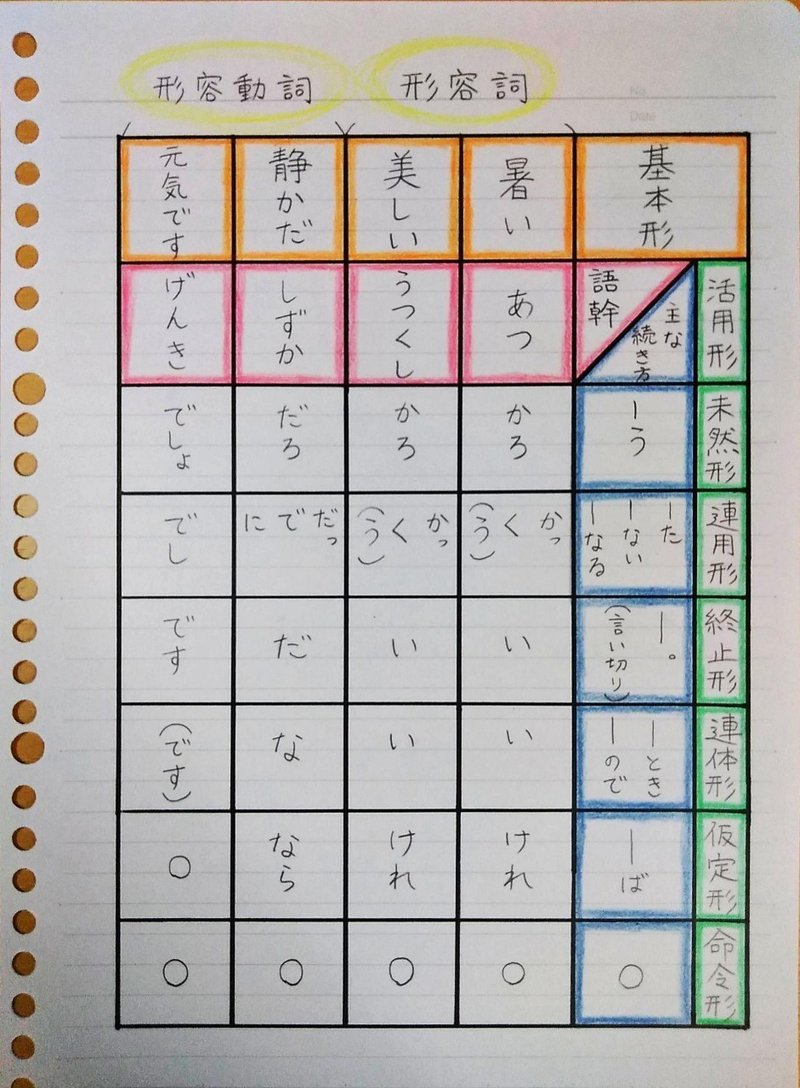 No.
Date
形容詞
形容動詞
基本形
暑い
美しい
静かだ
元気です
活用形
主な
続き方
語幹
あつ
うつくし
しずか
げんき
未然形
ーう
かろ
かろ
だろ
でしょ
連用形
ーた
ーない
ーなる
かっ
く
(う)
かっ
く
(う)
だっ
で
に
でし
終止形
ー。
(言い切り)
い
い
だ
です
連体形
ーとき
ーので
い
い
な
(です)
仮定形
ーば
けれ
けれ
なら
○
命令形
○
○
○
○
○